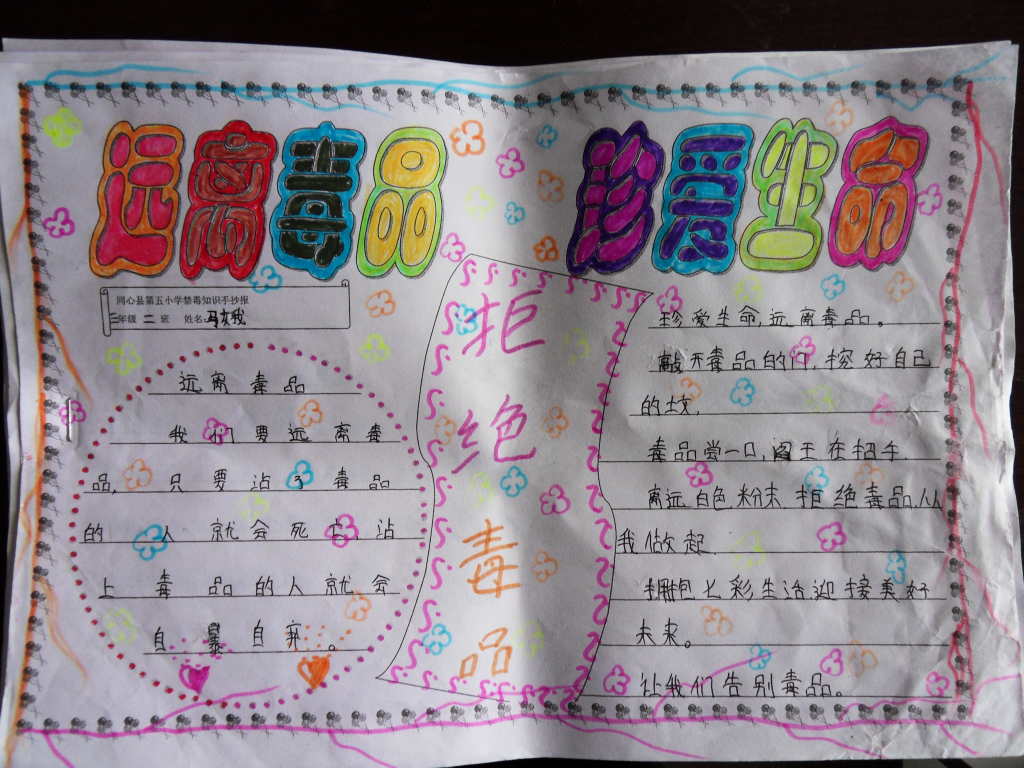 远离毒品
珍爱生命
同心县第五小学禁毒知识手抄报
三年级 二 班 姓名:马
远离毒品
我们要远离毒
品,只要沾了毒品
的人就会死亡沾
上毒品的人就会
自暴自弃。
拒
绝
毒
品
珍爱生命,远离毒品。
敲开毒品的门,挖好自己
的坟.
毒品尝一口,阎王在招手.
离远白色粉末 拒绝毒品,从
我做起.
拥抱七彩生活迎接美好
未来。
让我们告别毒品。